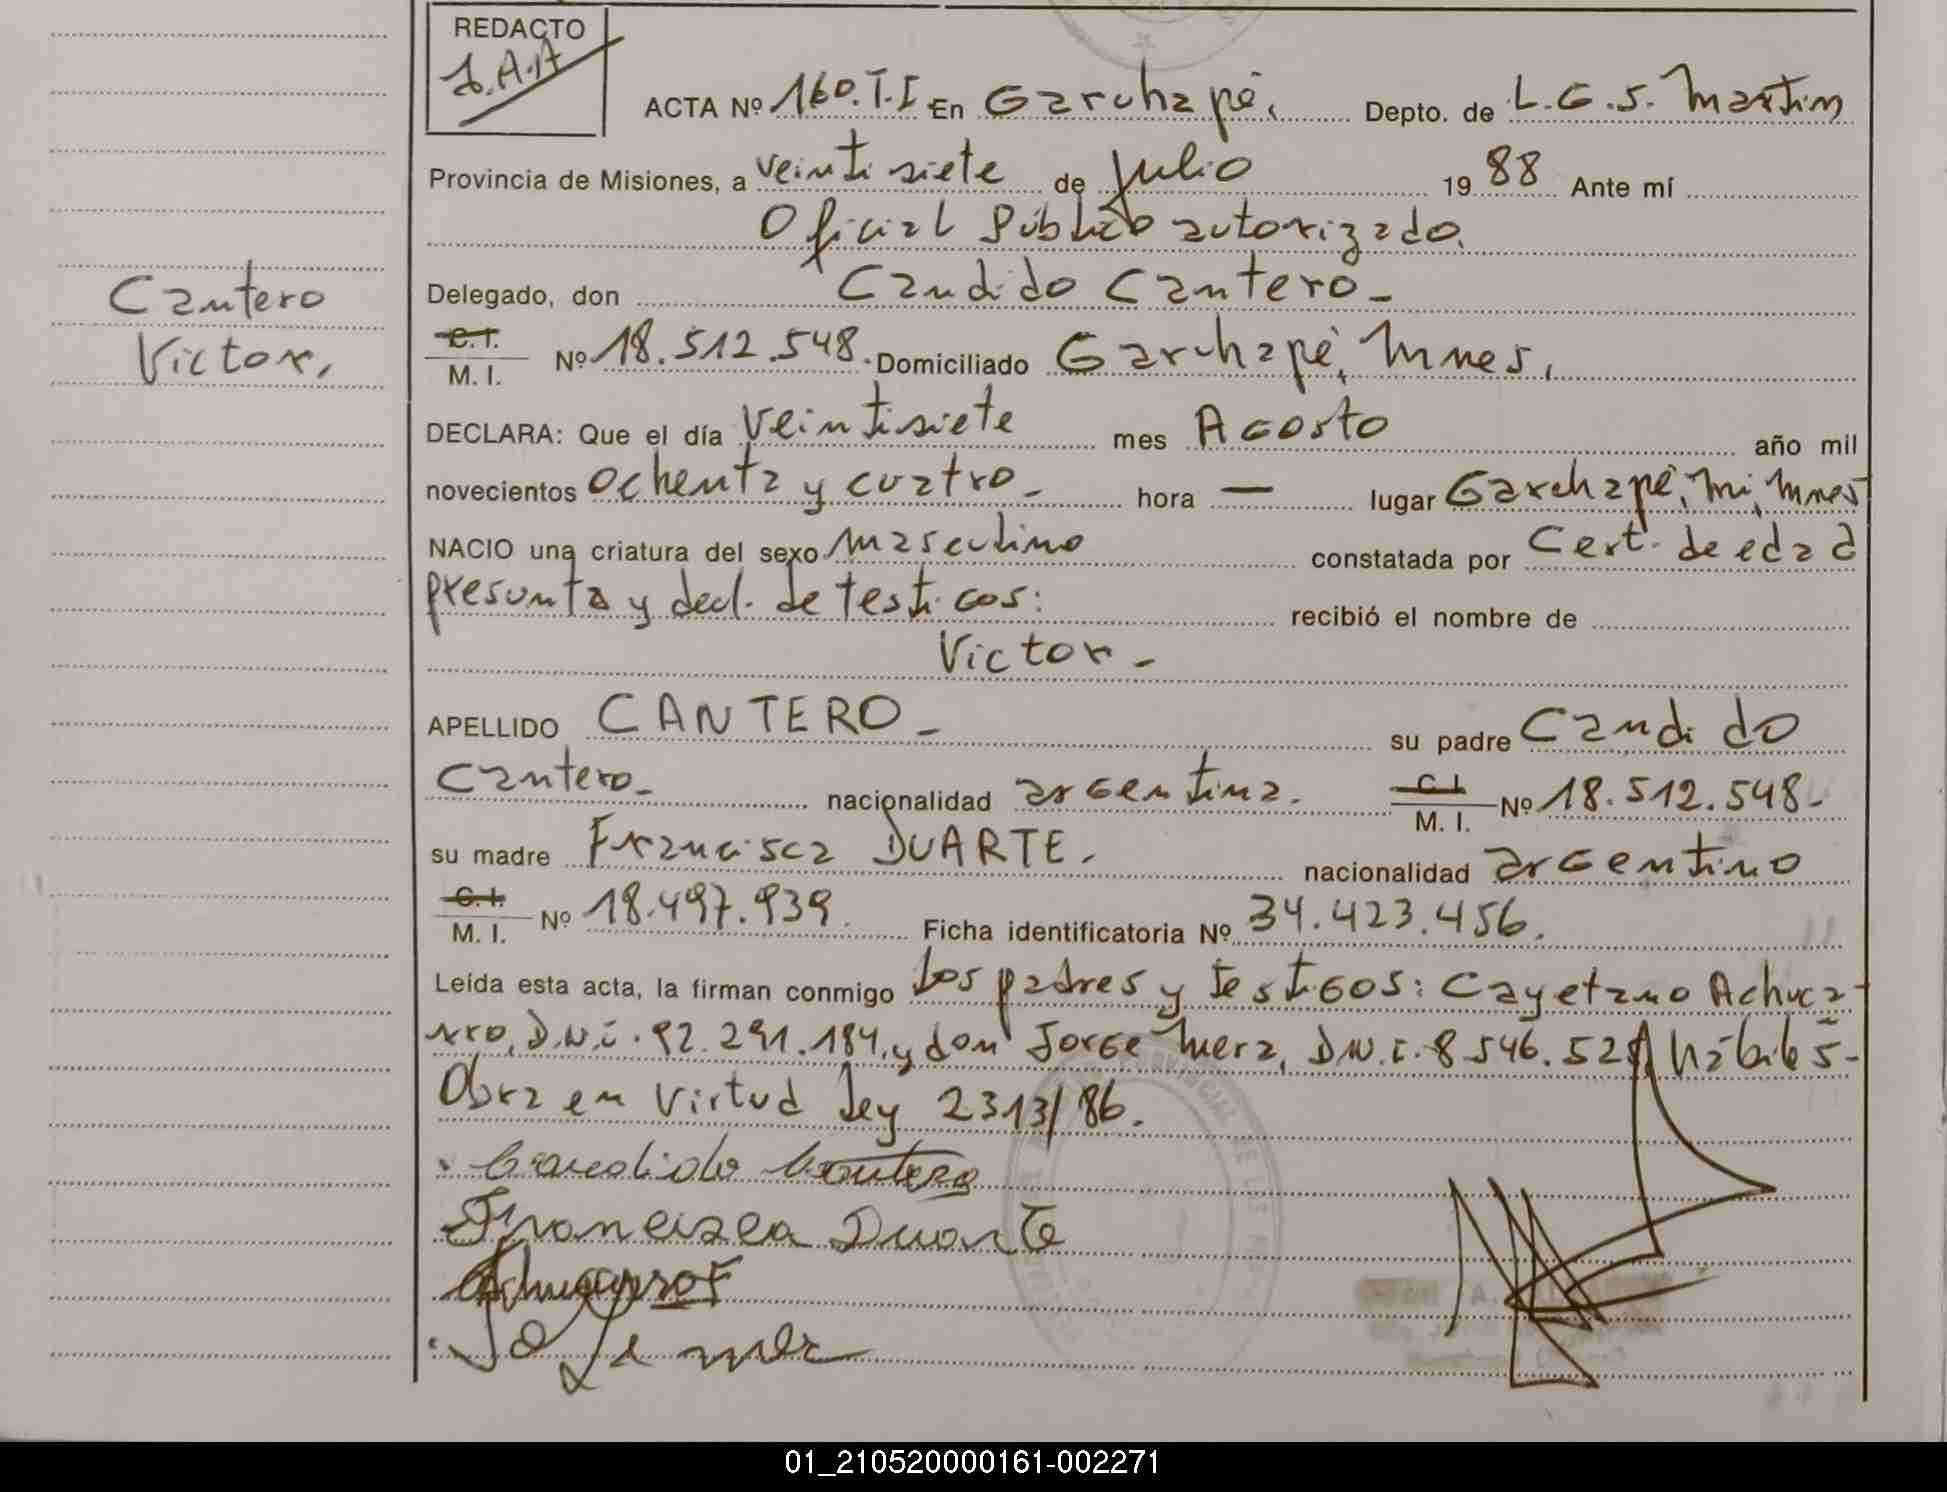 REDACTO
J.A.A
ACTA Nº 160.T.I En Garuhapé, Depto. de L.G.S. Martin
Provincia de Misiones, a veintisiete de Julio 1988 Ante mí
Oficial Público autorizado.
Delegado, don Candido Cantero -
C.I. M. I. Nº 18.512.548. Domiciliado Garuhapé, Mnes,
Cantero
Victor,
DECLARA: Que el día Veintisiete mes Agosto año mil
novecientos ochenta y cuatro - hora — lugar Garuhapé, Mi, Mnes
NACIO una criatura del sexo masculino constatada por Cert. de edad
presunta y decl. de testigos: recibió el nombre de
Victor -
APELLIDO CANTERO - su padre Candido
Cantero - nacionalidad argentina. C.I. M. I. Nº 18.512.548 -
su madre Francisca DUARTE. nacionalidad argentino
C.I. M. I. Nº 18.497.939. Ficha identificatoria Nº 34.423.456.
Leída esta acta, la firman conmigo los padres y testigos: Cayetano Achuca-
rro, D.N.i. 92.291.184, y don Jorge Mera, D.N.i. 8.546.52 hábiles -
Obra en virtud ley 2313/86.
Candido Cantero
Francisca Duarte
01_210520000161-002271